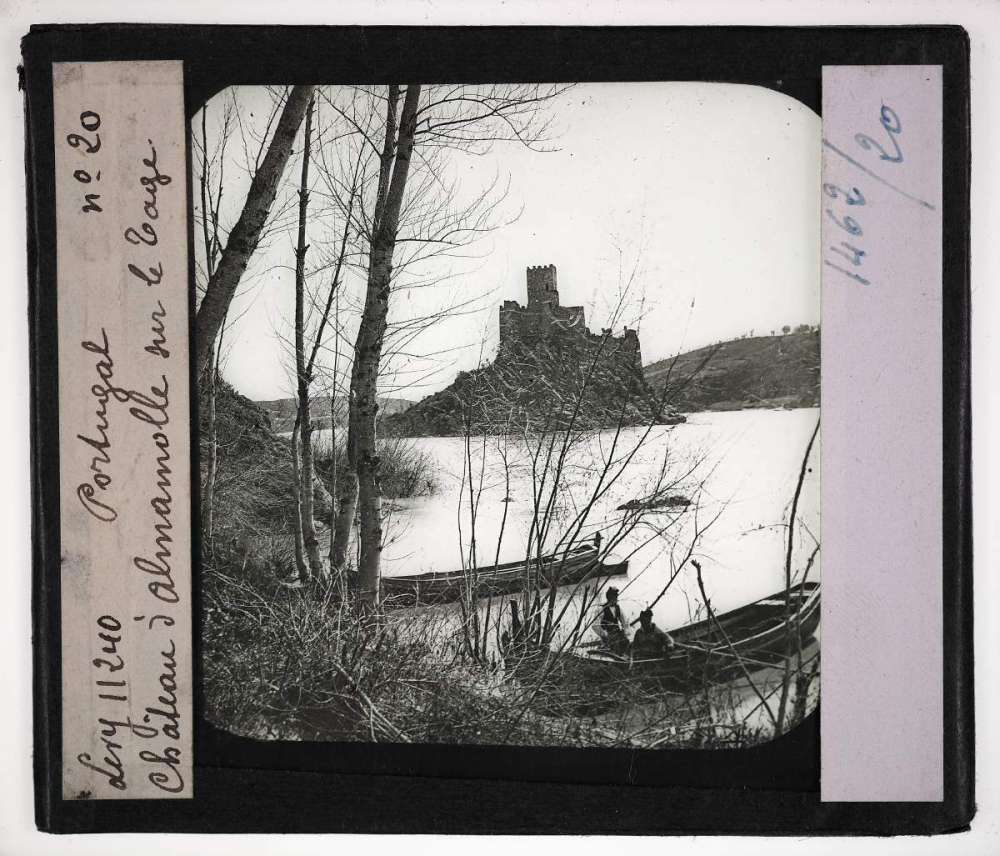 Levy 11240 Portugal nº 20
Château d'Almamolle sur le Tage.
1462/20